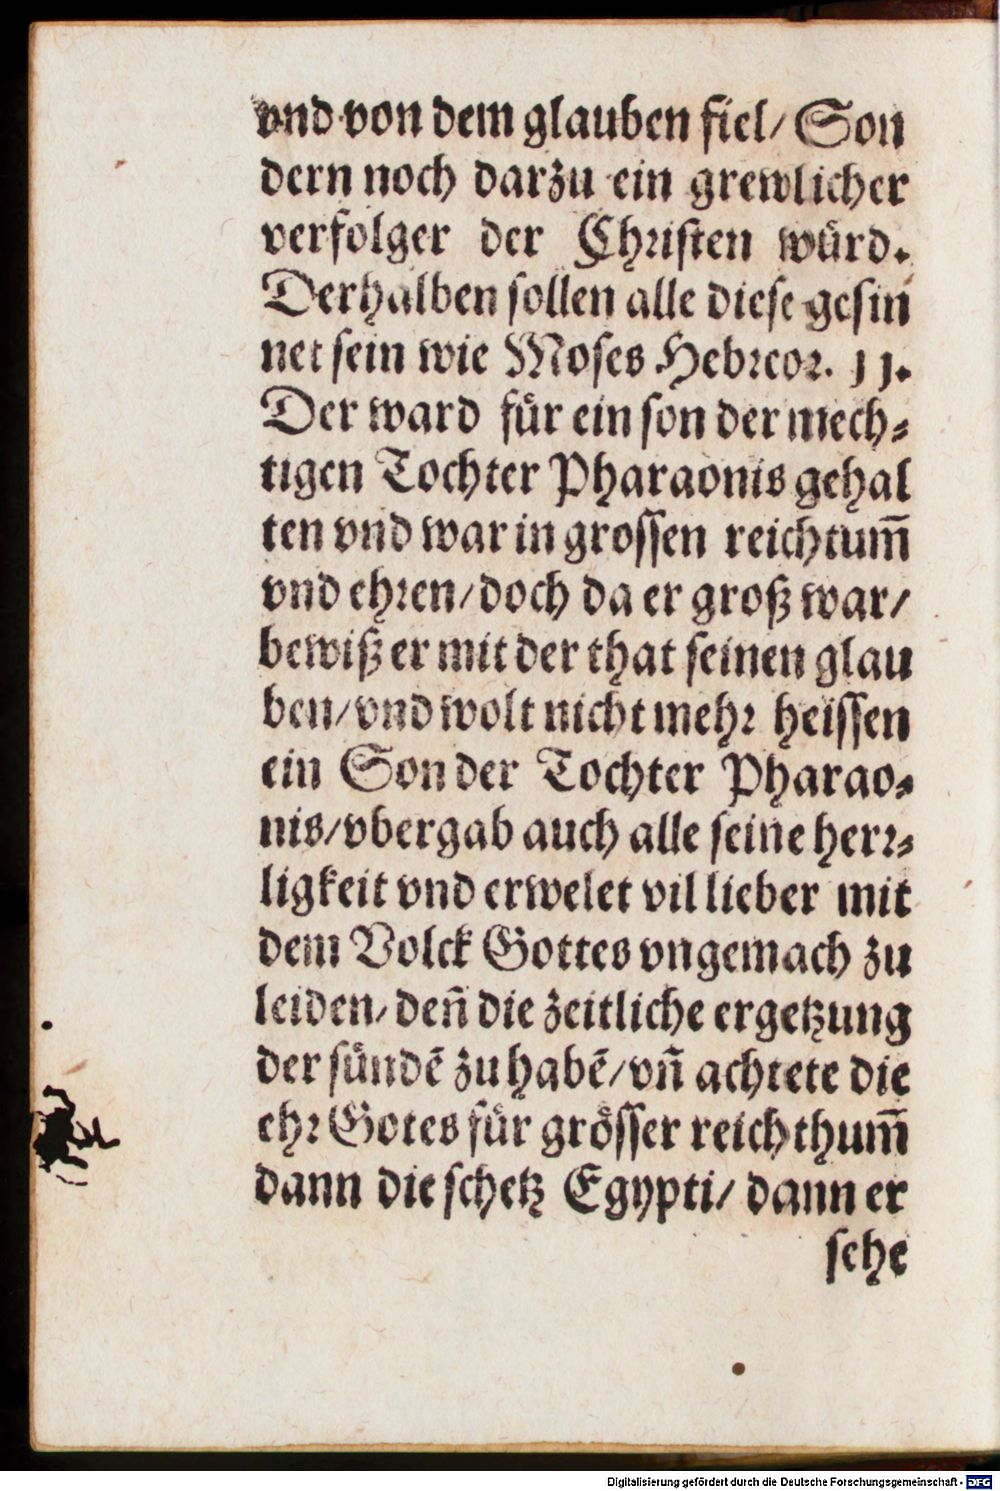 vnd von dem glauben fiel/ Son
dern noch darzu ein grewlicher
verfolger der Christen würd.
Derhalben sollen alle diese gesin
net sein wie Moses Hebreor. 11.
Der ward für ein son der mech⸗
tigen Tochter Pharaonis gehal
ten vnd war in grossen reichtum̄
vnd ehren/ doch da er groß war/
bewiß er mit der that seinen glau
ben/ vnd wolt nicht mehr heissen
ein Son der Tochter Pharao⸗
nis/ vbergab auch alle seine herr⸗
ligkeit vnd erwelet vil lieber mit
dem Volck Gottes vngemach zu
leiden/ den̄ die zeitliche ergetzung
der sündē zu habē/ vn̄ achtete die
ehr Gotes für grösser reichthum̄
dann die schetz Egypti/ dann er
sehe
Digitalisierung gefördert durch die Deutsche Forschungsgemeinschaft - DFG